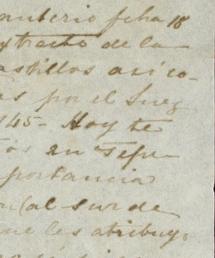 fcha 18
extracto de la
astillos así co-
as por el Juez
145- Hoy te
en Tepu-
portancia
(al sur de
que les atribuy.